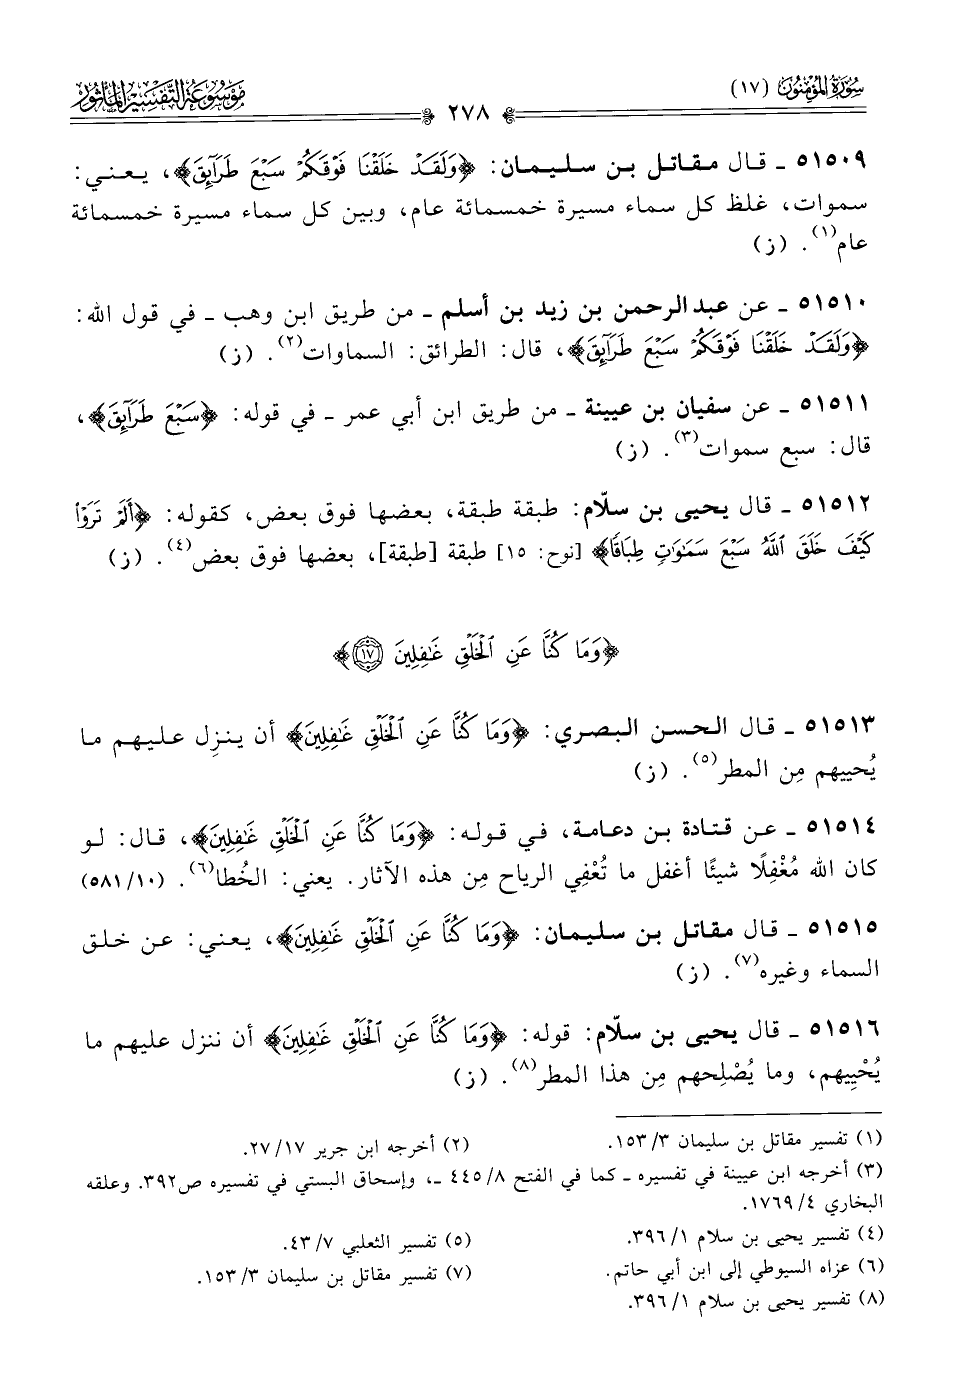 سُورَةُ المُؤْمِنُون (١٧)
٢٧٨
مَوْسُوعَة التَّفْسِيرِ المَأْثُور
٥١٥٠٩ ـ قال مقاتل بن سليمان: ﴿وَلَقَدْ خَلَقْنَا فَوْقَكُمْ سَبْعَ طَرَآئِقَ﴾، يعني:
سموات، غلظ كل سماء مسيرة خمسمائة عام، وبين كل سماء مسيرة خمسمائة
عام(١). (ز)
٥١٥١٠ ـ عن عبدالرحمن بن زيد بن أسلم ـ من طريق ابن وهب ـ في قول الله:
﴿وَلَقَدْ خَلَقْنَا فَوْقَكُمْ سَبْعَ طَرَآئِقَ﴾، قال: الطرائق: السماوات(٢). (ز)
٥١٥١١ ـ عن سفيان بن عيينة ـ من طريق ابن أبي عمر ـ في قوله: ﴿سَبْعَ طَرَآئِقَ﴾،
قال: سبع سموات(٣). (ز)
٥١٥١٢ ـ قال يحيى بن سلّام: طبقة طبقة، بعضها فوق بعض، كقوله: ﴿أَلَمْ تَرَوْا۟
كَيْفَ خَلَقَ ٱللَّهُ سَبْعَ سَمَٰوَٰتٍ طِبَاقًا﴾ [نوح: ١٥] طبقة [طبقة]، بعضها فوق بعض(٤). (ز)
﴿وَمَا كُنَّا عَنِ ٱلْخَلْقِ غَٰفِلِينَ ١٧﴾
٥١٥١٣ ـ قال الحسن البصري: ﴿وَمَا كُنَّا عَنِ ٱلْخَلْقِ غَٰفِلِينَ﴾ أن ينزِل عليهم ما
يُحييهم مِن المطر(٥). (ز)
٥١٥١٤ ـ عن قتادة بن دعامة، في قوله: ﴿وَمَا كُنَّا عَنِ ٱلْخَلْقِ غَٰفِلِينَ﴾، قال: لو
كان الله مُغْفِلًا شيئًا أغفل ما تُعْفِي الرياح مِن هذه الآثار. يعني: الخُطا(٦). (١٠/ ٥٨١)
٥١٥١٥ ـ قال مقاتل بن سليمان: ﴿وَمَا كُنَّا عَنِ ٱلْخَلْقِ غَٰفِلِينَ﴾، يعني: عن خلق
السماء وغيره(٧). (ز)
٥١٥١٦ ـ قال يحيى بن سلّام: قوله: ﴿وَمَا كُنَّا عَنِ ٱلْخَلْقِ غَٰفِلِينَ﴾ أن ننزل عليهم ما
يُحْيِيهم، وما يُصْلِحهم مِن هذا المطر(٨). (ز)
(١) تفسير مقاتل بن سليمان ٣/ ١٥٣. (٢) أخرجه ابن جرير ١٧/ ٢٧.
(٣) أخرجه ابن عيينة في تفسيره ـ كما في الفتح ٨/ ٤٤٥ ـ، وإسحاق البستي في تفسيره ص٣٩٢. وعلقه
البخاري ٤/ ١٧٦٩.
(٤) تفسير يحيى بن سلام ١/ ٣٩٦. (٥) تفسير الثعلبي ٧/ ٤٣.
(٦) عزاه السيوطي إلى ابن أبي حاتم. (٧) تفسير مقاتل بن سليمان ٣/ ١٥٣.
(٨) تفسير يحيى بن سلام ١/ ٣٩٦.